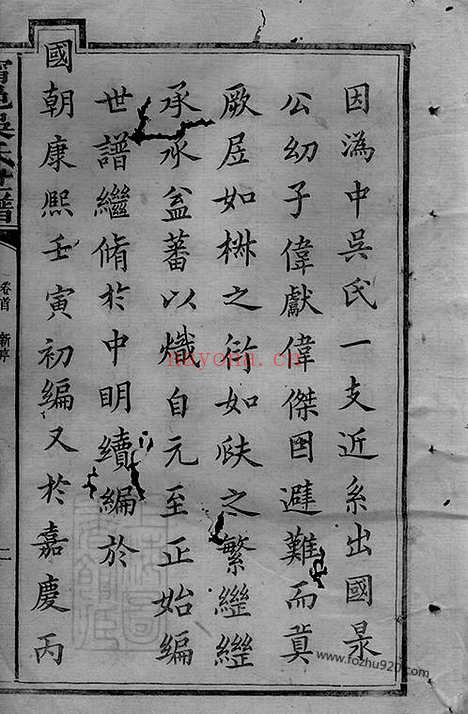 因溈中吳氏一支近系出國杲
公幼子偉獻偉傑因避難而奠
厥居如椒之衍如瓞之繁繩繩
承承益蕃以熾自元至正始編
世譜繼脩於中明續編於
國朝康熙壬寅初編又於嘉慶丙
甯邑吳氏世譜
卷首
新序
一
nayona.cn
www.fozhu920.com